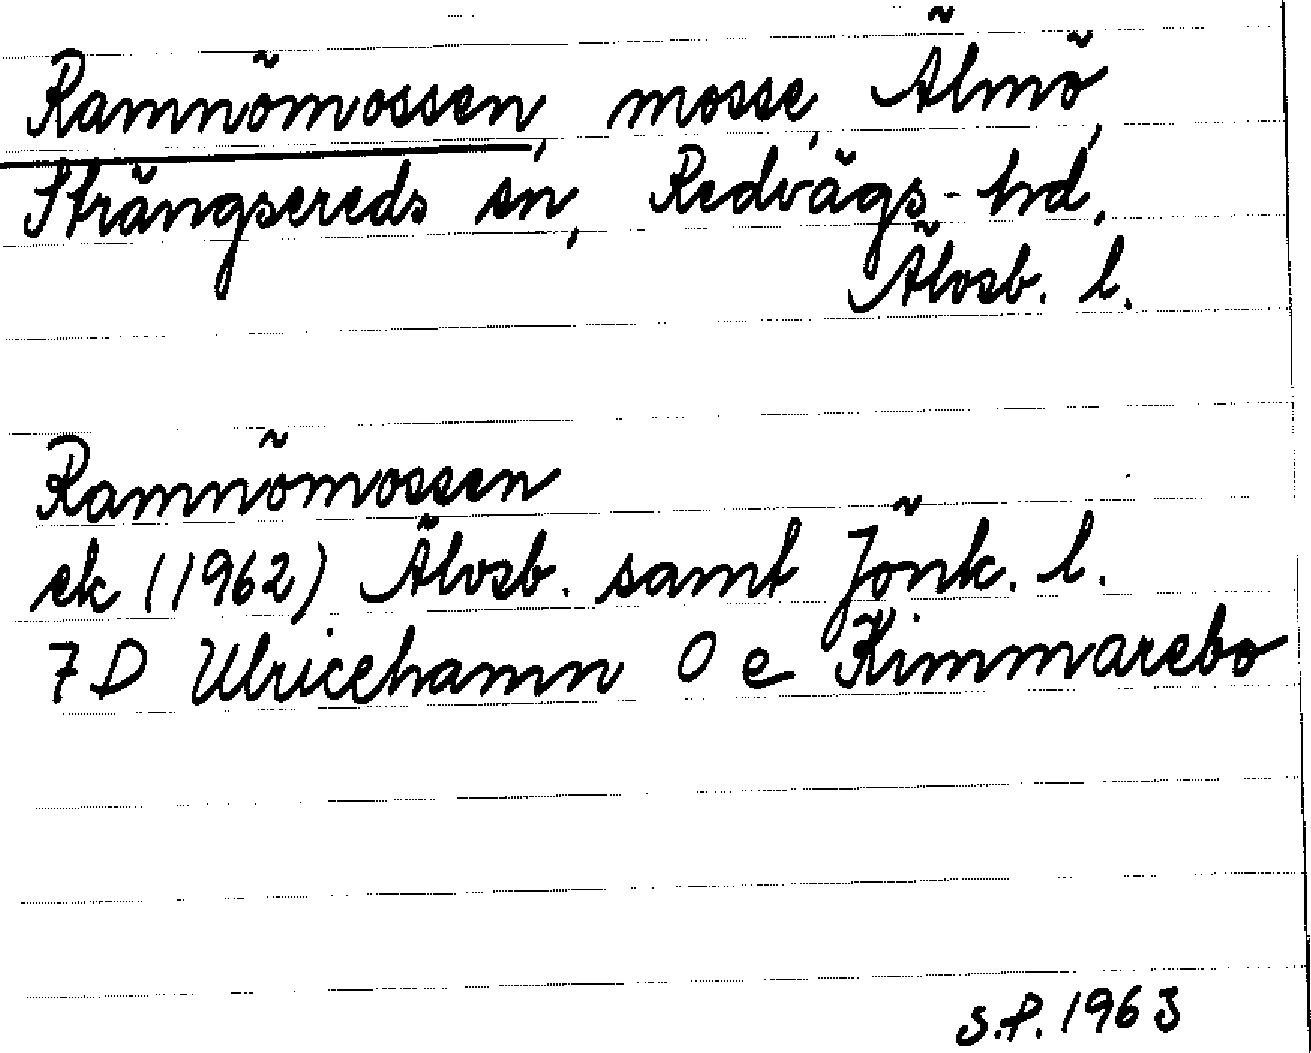 Ramnömossen, mosse, Älmö,
Strängsereds sn, Redvägs- hd,
Älvsb. l.
Ramnömossen
ek (1962) Älvsb. samt Jönk. l.
7 D Ulricehamn O e Kimmarebo
S.P. 1963